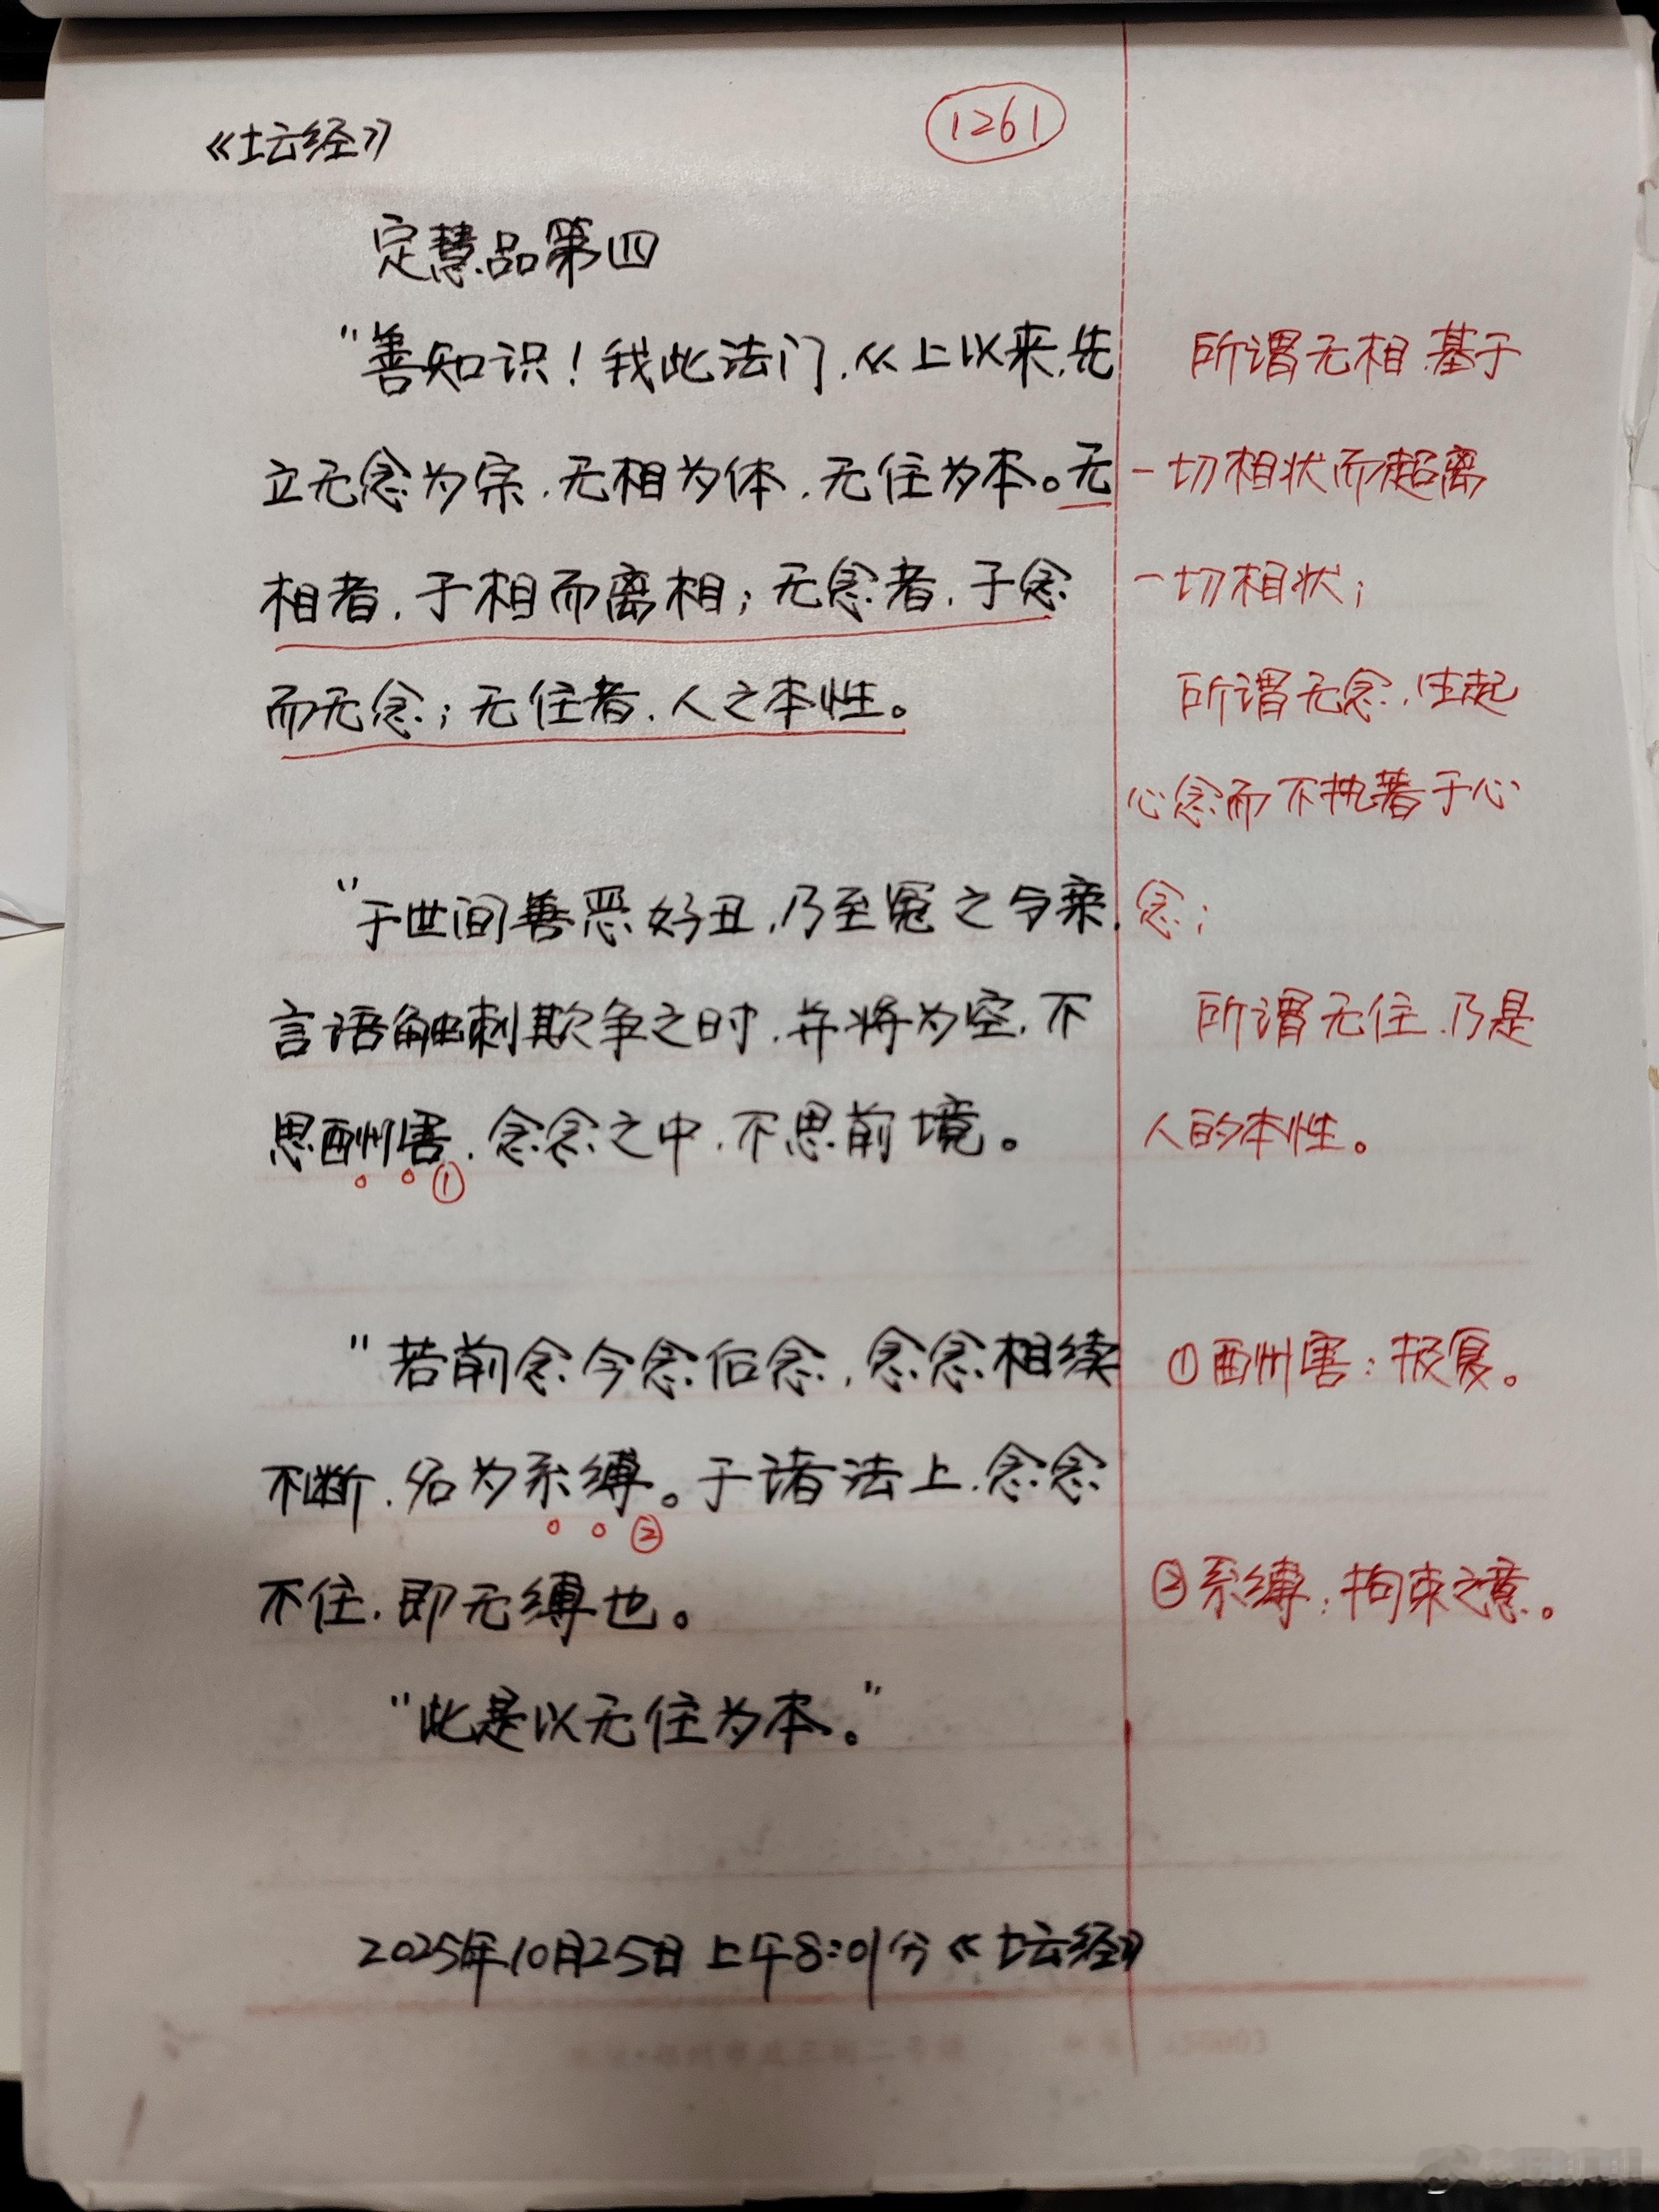 《坛经》
1261
定慧品第四
"善知识！我此法门，从上以来，先
立无念为宗，无相为体，无住为本。无
相者，于相而离相；无念者，于念
而无念；无住者，人之本性。
"于世间善恶好丑，乃至冤之与亲，
言语触刺欺争之时，并将为空，不
思酬害，念念之中，不思前境。
①
"若前念今念后念，念念相续
不断，名为系缚。于诸法上，念念
②
不住，即无缚也。
"此是以无住为本。"
2025年10月25日上午8:01分《坛经》
所谓无相，基于
一切相状而超离
一切相状；
所谓无念，生起
心念而不执著于心
念；
所谓无住，乃是
人的本性。
①酬害：报复。
②系缚：拘束之意。